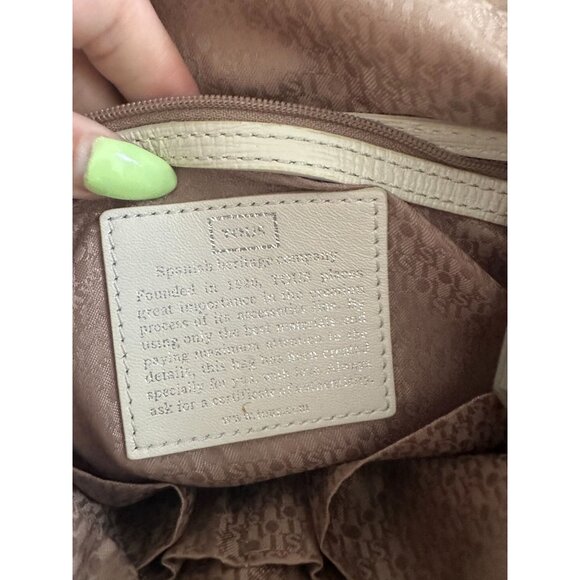 TOUS
Spanish heritage company
Founded in 1920, TOUS places
great importance in the
process of its accessories
using only the best materials and
paying maximum attention to the
details, this bag has been created
specially for you, Always
ask for a certificate of
www.tous.com